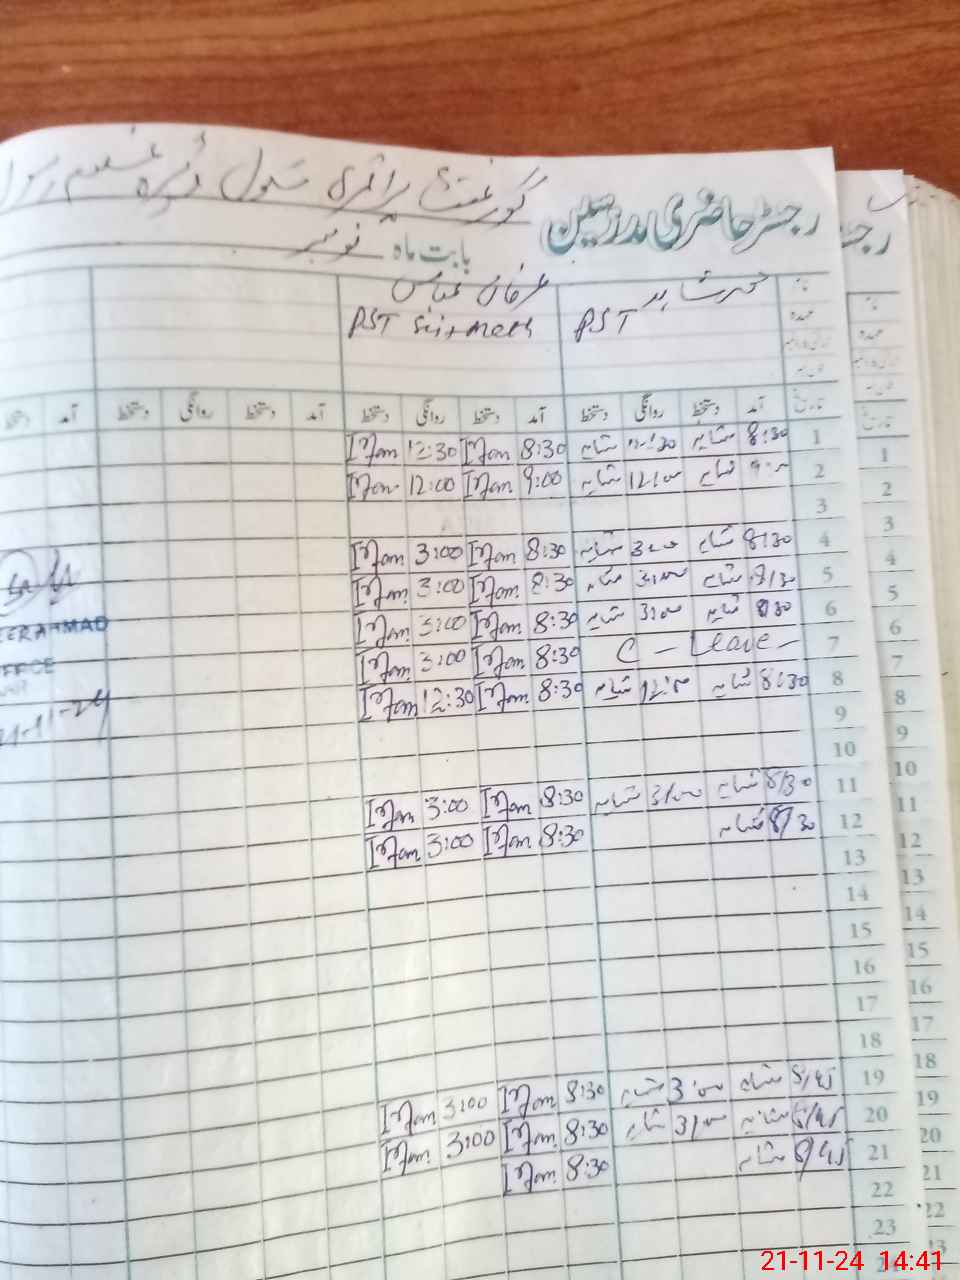 رجسٹر حاضری مدرسین
گورنمنٹ پرائمری سکول
بابت ماہ نومبر
عرفان عباس
PST
PST
آمد دستخط روانگی دستخط آمد دستخط روانگی دستخط آمد دستخط روانگی دستخط آمد
1 8:30 شاہد 12:30 شاہد 8:30 Irfan 12:30 Irfan
2 شاہد شاہد 9:00 Irfan 12:00 Irfan
3
4 8:30 شاہد 3:00 شاہد 8:30 Irfan 3:00 Irfan
5 8/30 شاہد 3/00 شاہد 8:30 Irfan 3:00 Irfan
6 8:30 شاہد 3/00 شاہد 8:30 Irfan 3:00 Irfan
7 C - Leave - 8:30 Irfan 3:00 Irfan
8 8:30 شاہد شاہد 8:30 Irfan 12:30 Irfan
9
10
11 8/30 شاہد 3/00 شاہد 8:30 Irfan 3:00 Irfan
12 8/30 شاہد 8:30 Irfan 3:00 Irfan
13
14
15
16
17
18
19 8/45 شاہد 3:00 شاہد 8:30 Irfan 3:00 Irfan
20 8/45 شاہد 3/00 شاہد 8:30 Irfan 3:00 Irfan
21 8/45 شاہد 8:30 Irfan
22
23
24
EERAHMAD
1
2
3
4
5
6
7
8
9
10
11
12
13
14
15
16
17
18
19
20
21
22
21-11-24 14:41